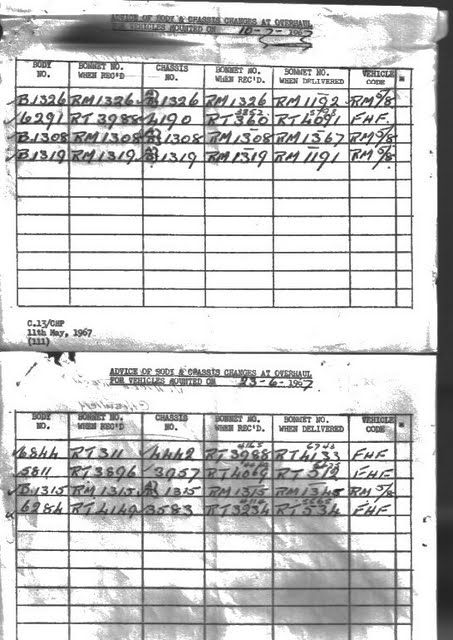 ADVICE OF BODY & CHASSIS CHANGES AT OVERHAUL
FOR VEHICLES MOUNTED ON 10-7-1967
BODY NO. BONNET NO. WHEN REC'D CHASSIS NO. BONNET NO. WHEN REC'D. BONNET NO. WHEN DELIVERED VEHICLE CODE
B.1326 RM1326 1326 RM1326 RM1192 RM5/8
6291 RT3988 4190 RT360 RT4091 FHF.
B.1308 RM1308 1308 RM1308 RM1367 RM5/8
B.1319 RM1319 1319 RM1319 RM1191 RM5/8
C.13/CHP
11th May, 1967
(111)
ADVICE OF BODY & CHASSIS CHANGES AT OVERHAUL
FOR VEHICLES MOUNTED ON 23-6-1967
BODY NO. BONNET NO. WHEN REC'D CHASSIS NO. BONNET NO. WHEN REC'D. BONNET NO. WHEN DELIVERED VEHICLE CODE
6844 RT311 4442 RT3988 RT4133 FHF
5811 RT3896 3957 RT4069 RT519 FHF.
B.1315 RM1315 1315 RM1315 RM1345 RM5/8
6284 RT4149 3583 RT3234 RT534 FHF